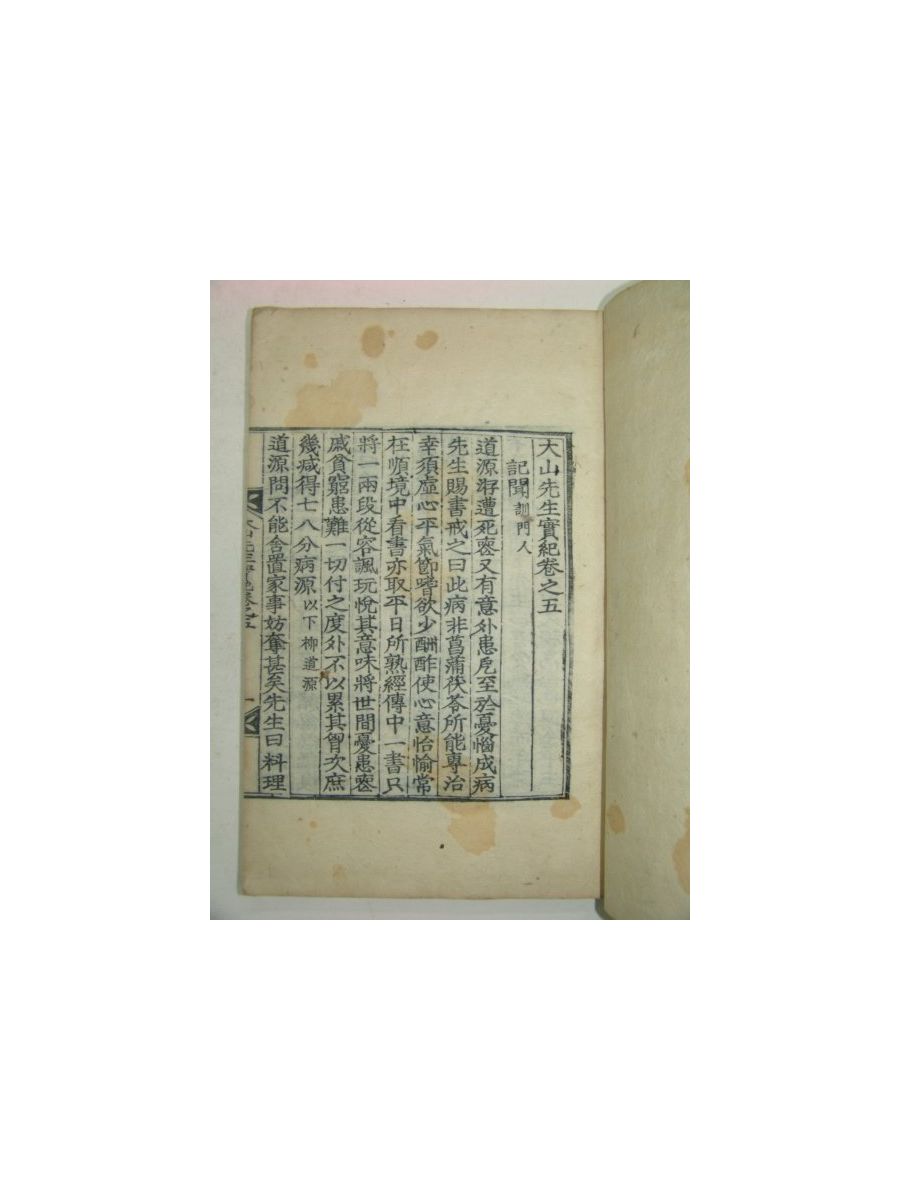 大山先生實紀卷之五
記聞 訓門人
道源洊遭死喪又有意外患厄至於憂惱成病
先生賜書戒之曰此病非菖蒲茯苓所能專治
幸須虛心平氣節嗜欲少酬酢使心意怡愉常
在順境中看書亦取平日所熟經傳中一書只
將一兩段從容諷玩悅其意味將世間憂患喪
戚貧窮患難一切付之度外不以累其胷次庶
幾減得七八分病源 以下柳道源
道源問不能舍置家事妨奪甚矣先生曰料理